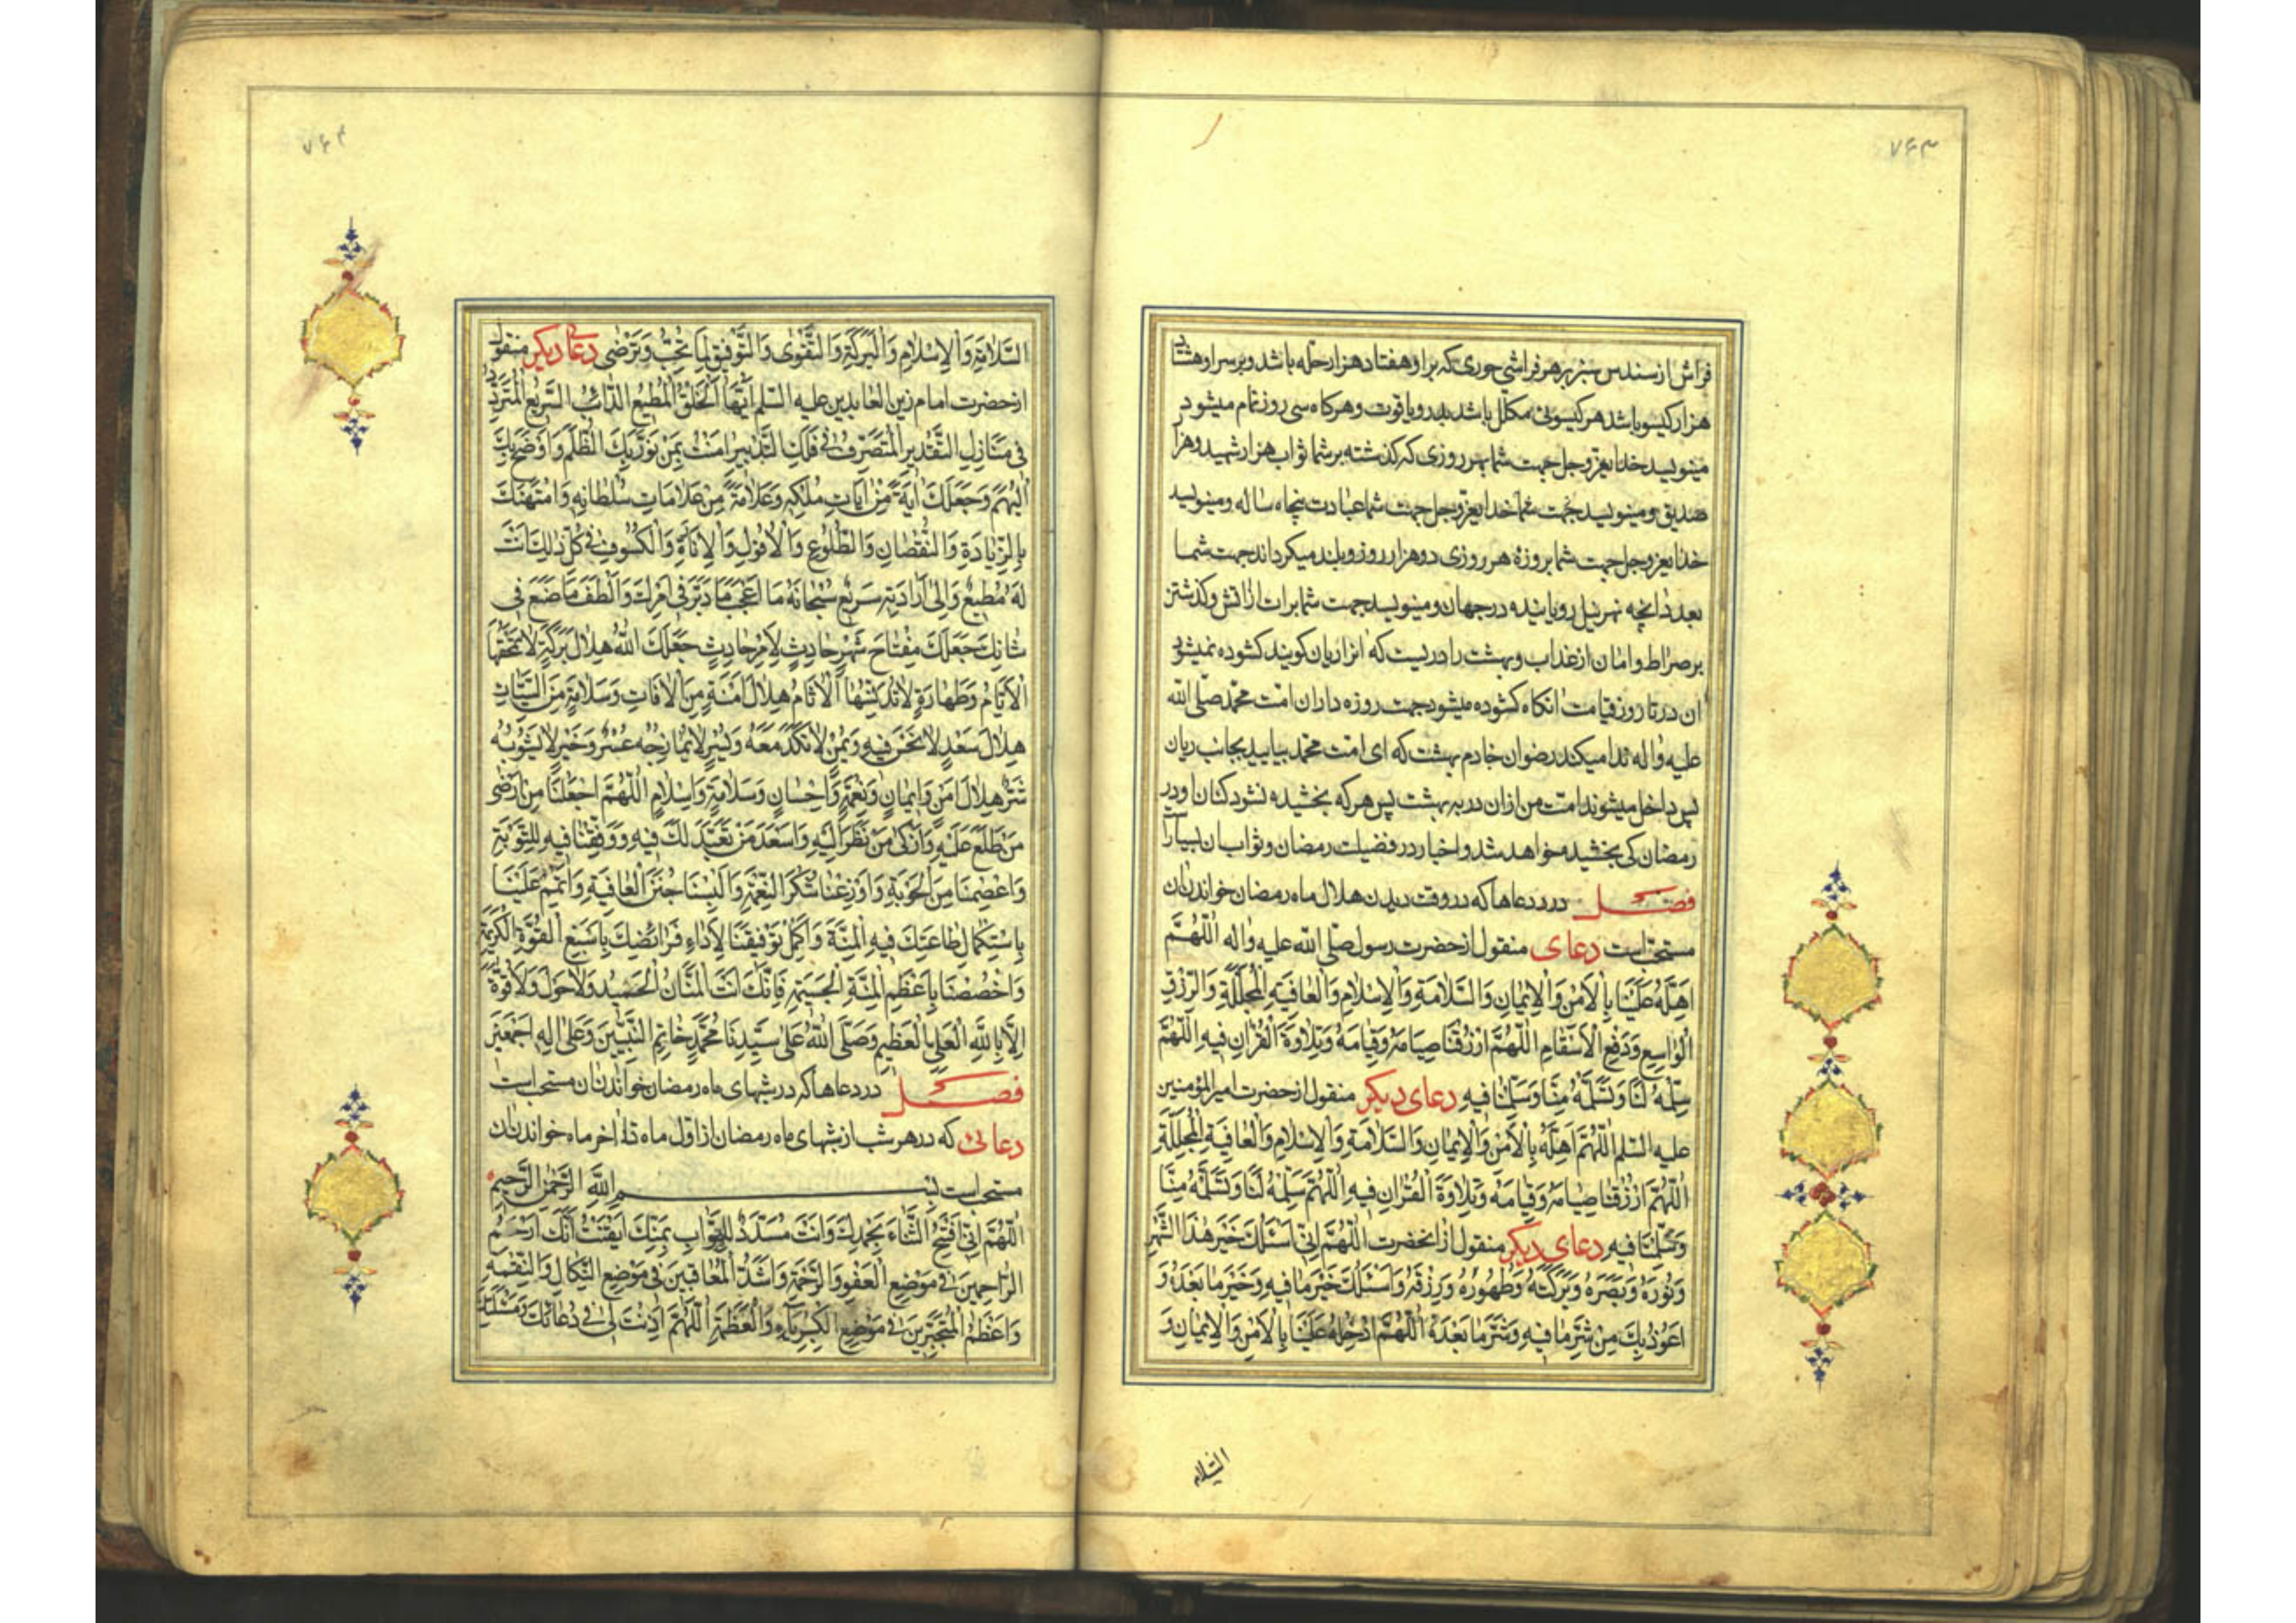 ۷۶۳
فراش از سندس سبز بر هر فراشی حوری که بر او هفتاد هزار حله باشد و بر سر او هشتاد
هزار کیسو باشد هر کیسوئی مکلل باشد بدر و یاقوت و هرکاه سی روز تمام میشود
مینویسد خدایعزوجل جهت شما بهر روزی که کذشته بر شما ثواب هزار شهید و هزار
صدیق و مینویسد خدایعزوجل جهت شما عبادت پنجاه ساله و مینویسد
خدایعزوجل جهت شما بروزه هر روزی دو هزار روز و بلند میکرداند جهت شما
بعدد انچه نهر نیل رویاینده در جهان و مینویسد جهت شما برات از اتش و کذشتن
بر صراط و امان از عذاب و بهشت را دریست که انرا ریان کویند کشوده نمیشود
ان در تا روز قیامت انکاه کشوده میشود جهت روزه داران امت محمد صلی الله
علیه واله ندا میکند رضوان خادم بهشت که ای امت محمد بیایید بجانب ریان
پس داخل میشوند امت من ازان در به بهشت پس هرکه بخشیده نشود کناه او در
رمضان کی بخشیده خواهد شد و اخبار در فضیلت رمضان و ثواب ان بسیار است
فصل در دعاها که در وقت دیدن هلال ماه رمضان خواندن ان
مستحب است دعای منقول از حضرت رسول صلی الله علیه واله اللّٰهُمَّ
اَهِلَّهُ عَلَیْنَا بِالْاَمْنِ وَالْاِیمَانِ وَالسَّلَامَةِ وَالْاِسْلَامِ وَالْعَافِیَةِ الْمُجَلِّلَةِ وَالرِّزْقِ
الْوَاسِعِ وَدَفْعِ الْاَسْقَامِ اللّٰهُمَّ ارْزُقْنَا صِیَامَهُ وَقِیَامَهُ وَتِلَاوَةَ الْقُرْاٰنِ فِیهِ اللّٰهُمَّ
سَلِّمْهُ لَنَا وَتَسَلَّمْهُ مِنَّا وَسَلِّمْنَا فِیهِ دعای دیکر منقول از حضرت امیر المؤمنین
علیه السلم اللّٰهُمَّ اَهِلَّهُ بِالْاَمْنِ وَالْاِیمَانِ وَالسَّلَامَةِ وَالْاِسْلَامِ وَالْعَافِیَةِ الْمُجَلِّلَةِ
اللّٰهُمَّ ارْزُقْنَا صِیَامَهُ وَقِیَامَهُ وَتِلَاوَةَ الْقُرْاٰنِ فِیهِ اللّٰهُمَّ سَلِّمْهُ لَنَا وَتَسَلَّمْهُ مِنَّا
وَسَلِّمْنَا فِیهِ دعای دیکر منقول از انحضرت اللّٰهُمَّ اِنِّی اَسْئَلُكَ خَیْرَ هٰذَا الشَّهْرِ
وَنُورَهُ وَنَصْرَهُ وَبَرَکَتَهُ وَطَهُورَهُ وَرِزْقَهُ وَاَسْئَلُكَ خَیْرَ مَا فِیهِ وَخَیْرَ مَا بَعْدَهُ وَ
اَعُوذُ بِكَ مِنْ شَرِّ مَا فِیهِ وَشَرِّ مَا بَعْدَهُ اللّٰهُمَّ اَدْخِلْهُ عَلَیْنَا بِالْاَمْنِ وَالْاِیمَانِ وَ
السَّلَامَةِ
۷۶۴
السَّلَامَةِ وَالْاِسْلَامِ وَالْبَرَکَةِ وَالتَّقْوٰی وَالتَّوْفِیقِ لِمَا تُحِبُّ وَتَرْضٰی دعای دیکر منقول
از حضرت امام زین العابدین علیه السلم اَیُّهَا الْخَلْقُ الْمُطِیعُ الدَّائِبُ السَّرِیعُ الْمُتَرَدِّدُ
فِی مَنَازِلِ التَّقْدِیرِ الْمُتَصَرِّفُ فِی فَلَكِ التَّدْبِیرِ اٰمَنْتُ بِمَنْ نَوَّرَ بِكَ الظُّلَمَ وَاَوْضَحَ بِكَ
الْبُهَمَ وَجَعَلَكَ اٰیَةً مِنْ اٰیَاتِ مُلْکِهِ وَعَلَامَةً مِنْ عَلَامَاتِ سُلْطَانِهِ وَامْتَهَنَكَ
بِالزِّیَادَةِ وَالنُّقْصَانِ وَالطُّلُوعِ وَالْاُفُولِ وَالْاِنَارَةِ وَالْکُسُوفِ فِی کُلِّ ذٰلِكَ اَنْتَ
لَهُ مُطِیعٌ وَاِلٰی اِرَادَتِهِ سَرِیعٌ سُبْحَانَهُ مَا اَعْجَبَ مَا دَبَّرَ فِی اَمْرِكَ وَاَلْطَفَ مَا صَنَعَ فِی
شَانِكَ جَعَلَكَ مِفْتَاحَ شَهْرٍ حَادِثٍ لِاَمْرٍ حَادِثٍ جَعَلَكَ اللّٰهُ هِلَالَ بَرَکَةٍ لَا تَمْحَقُهَا
الْاَیَّامُ وَطَهَارَةٍ لَا تُدَنِّسُهَا الْاٰثَامُ هِلَالَ اَمَنَةٍ مِنَ الْاٰفَاتِ وَسَلَامَةٍ مِنَ السَّیِّئَاتِ
هِلَالَ سَعْدٍ لَا نَحْسَ فِیهِ وَیُمْنٍ لَا نَکَدَ مَعَهُ وَیُسْرٍ لَا یُمَازِجُهُ عُسْرٌ وَخَیْرٍ لَا یَشُوبُهُ
شَرٌّ هِلَالَ اَمْنٍ وَاِیمَانٍ وَنِعْمَةٍ وَاِحْسَانٍ وَسَلَامَةٍ وَاِسْلَامٍ اللّٰهُمَّ اجْعَلْنَا مِنْ اَرْضٰی
مَنْ طَلَعَ عَلَیْهِ وَاَزْکٰی مَنْ نَظَرَ اِلَیْهِ وَاَسْعَدَ مَنْ تَعَبَّدَ لَكَ فِیهِ وَوَفِّقْنَا فِیهِ لِلتَّوْبَةِ
وَاعْصِمْنَا مِنَ الْحَوْبَةِ وَاَوْزِعْنَا شُکْرَ النِّعْمَةِ وَاَلْبِسْنَا جُنَنَ الْعَافِیَةِ وَاَتْمِمْ عَلَیْنَا
بِاسْتِکْمَالِ طَاعَتِكَ فِیهِ الْمِنَّةَ وَاَکْمِلْ تَوْفِیقَنَا لِاَدَاءِ فَرَائِضِكَ بِاَسْبَغِ الْقُوَّةِ الْکَرِیمَةِ
وَاخْصُصْنَا بِاَعْظَمِ الْمِنَّةِ الْجَسِیمَةِ فَاِنَّكَ اَنْتَ الْمَنَّانُ الْحَمِیدُ وَلَا حَوْلَ وَلَا قُوَّةَ
اِلَّا بِاللّٰهِ الْعَلِیِّ الْعَظِیمِ وَصَلَّی اللّٰهُ عَلٰی سَیِّدِنَا مُحَمَّدٍ خَاتِمِ النَّبِیِّینَ وَعَلٰی اٰلِهِ اَجْمَعِینَ
فصل در دعاها که در شبهای ماه رمضان خواندن ان مستحب است
دعائی که در هر شب از شبهای ماه رمضان از اول ماه تا اخر ماه خواندن ان
مستحب است بِسْمِ اللّٰهِ الرَّحْمٰنِ الرَّحِیمِ
اللّٰهُمَّ اِنِّی اَفْتَتِحُ الثَّنَاءَ بِحَمْدِكَ وَاَنْتَ مُسَدِّدٌ لِلصَّوَابِ بِمَنِّكَ اَیْقَنْتُ اَنَّكَ اَرْحَمُ
الرَّاحِمِینَ فِی مَوْضِعِ الْعَفْوِ وَالرَّحْمَةِ وَاَشَدُّ الْمُعَاقِبِینَ فِی مَوْضِعِ النَّکَالِ وَالنَّقِمَةِ
وَاَعْظَمُ الْمُتَجَبِّرِینَ فِی مَوْضِعِ الْکِبْرِیَاءِ وَالْعَظَمَةِ اللّٰهُمَّ اَذِنْتَ لِی فِی دُعَائِكَ وَمَسْئَلَتِكَ